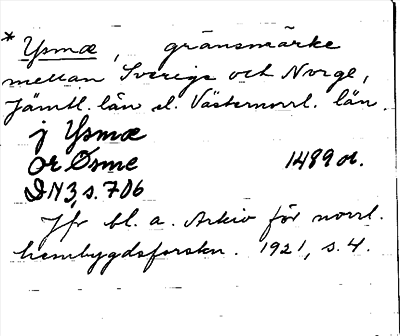 * Ysmæ, gränsmärke
mellan Sverige och Norge,
Jämtl. län el. Västernorrl. län.
j Ysmæ
or Øsme 1489 or.
DN3, s. 706
Jfr bl. a. Arkiv för norrl.
hembygdsforskn. 1921, s. 4.